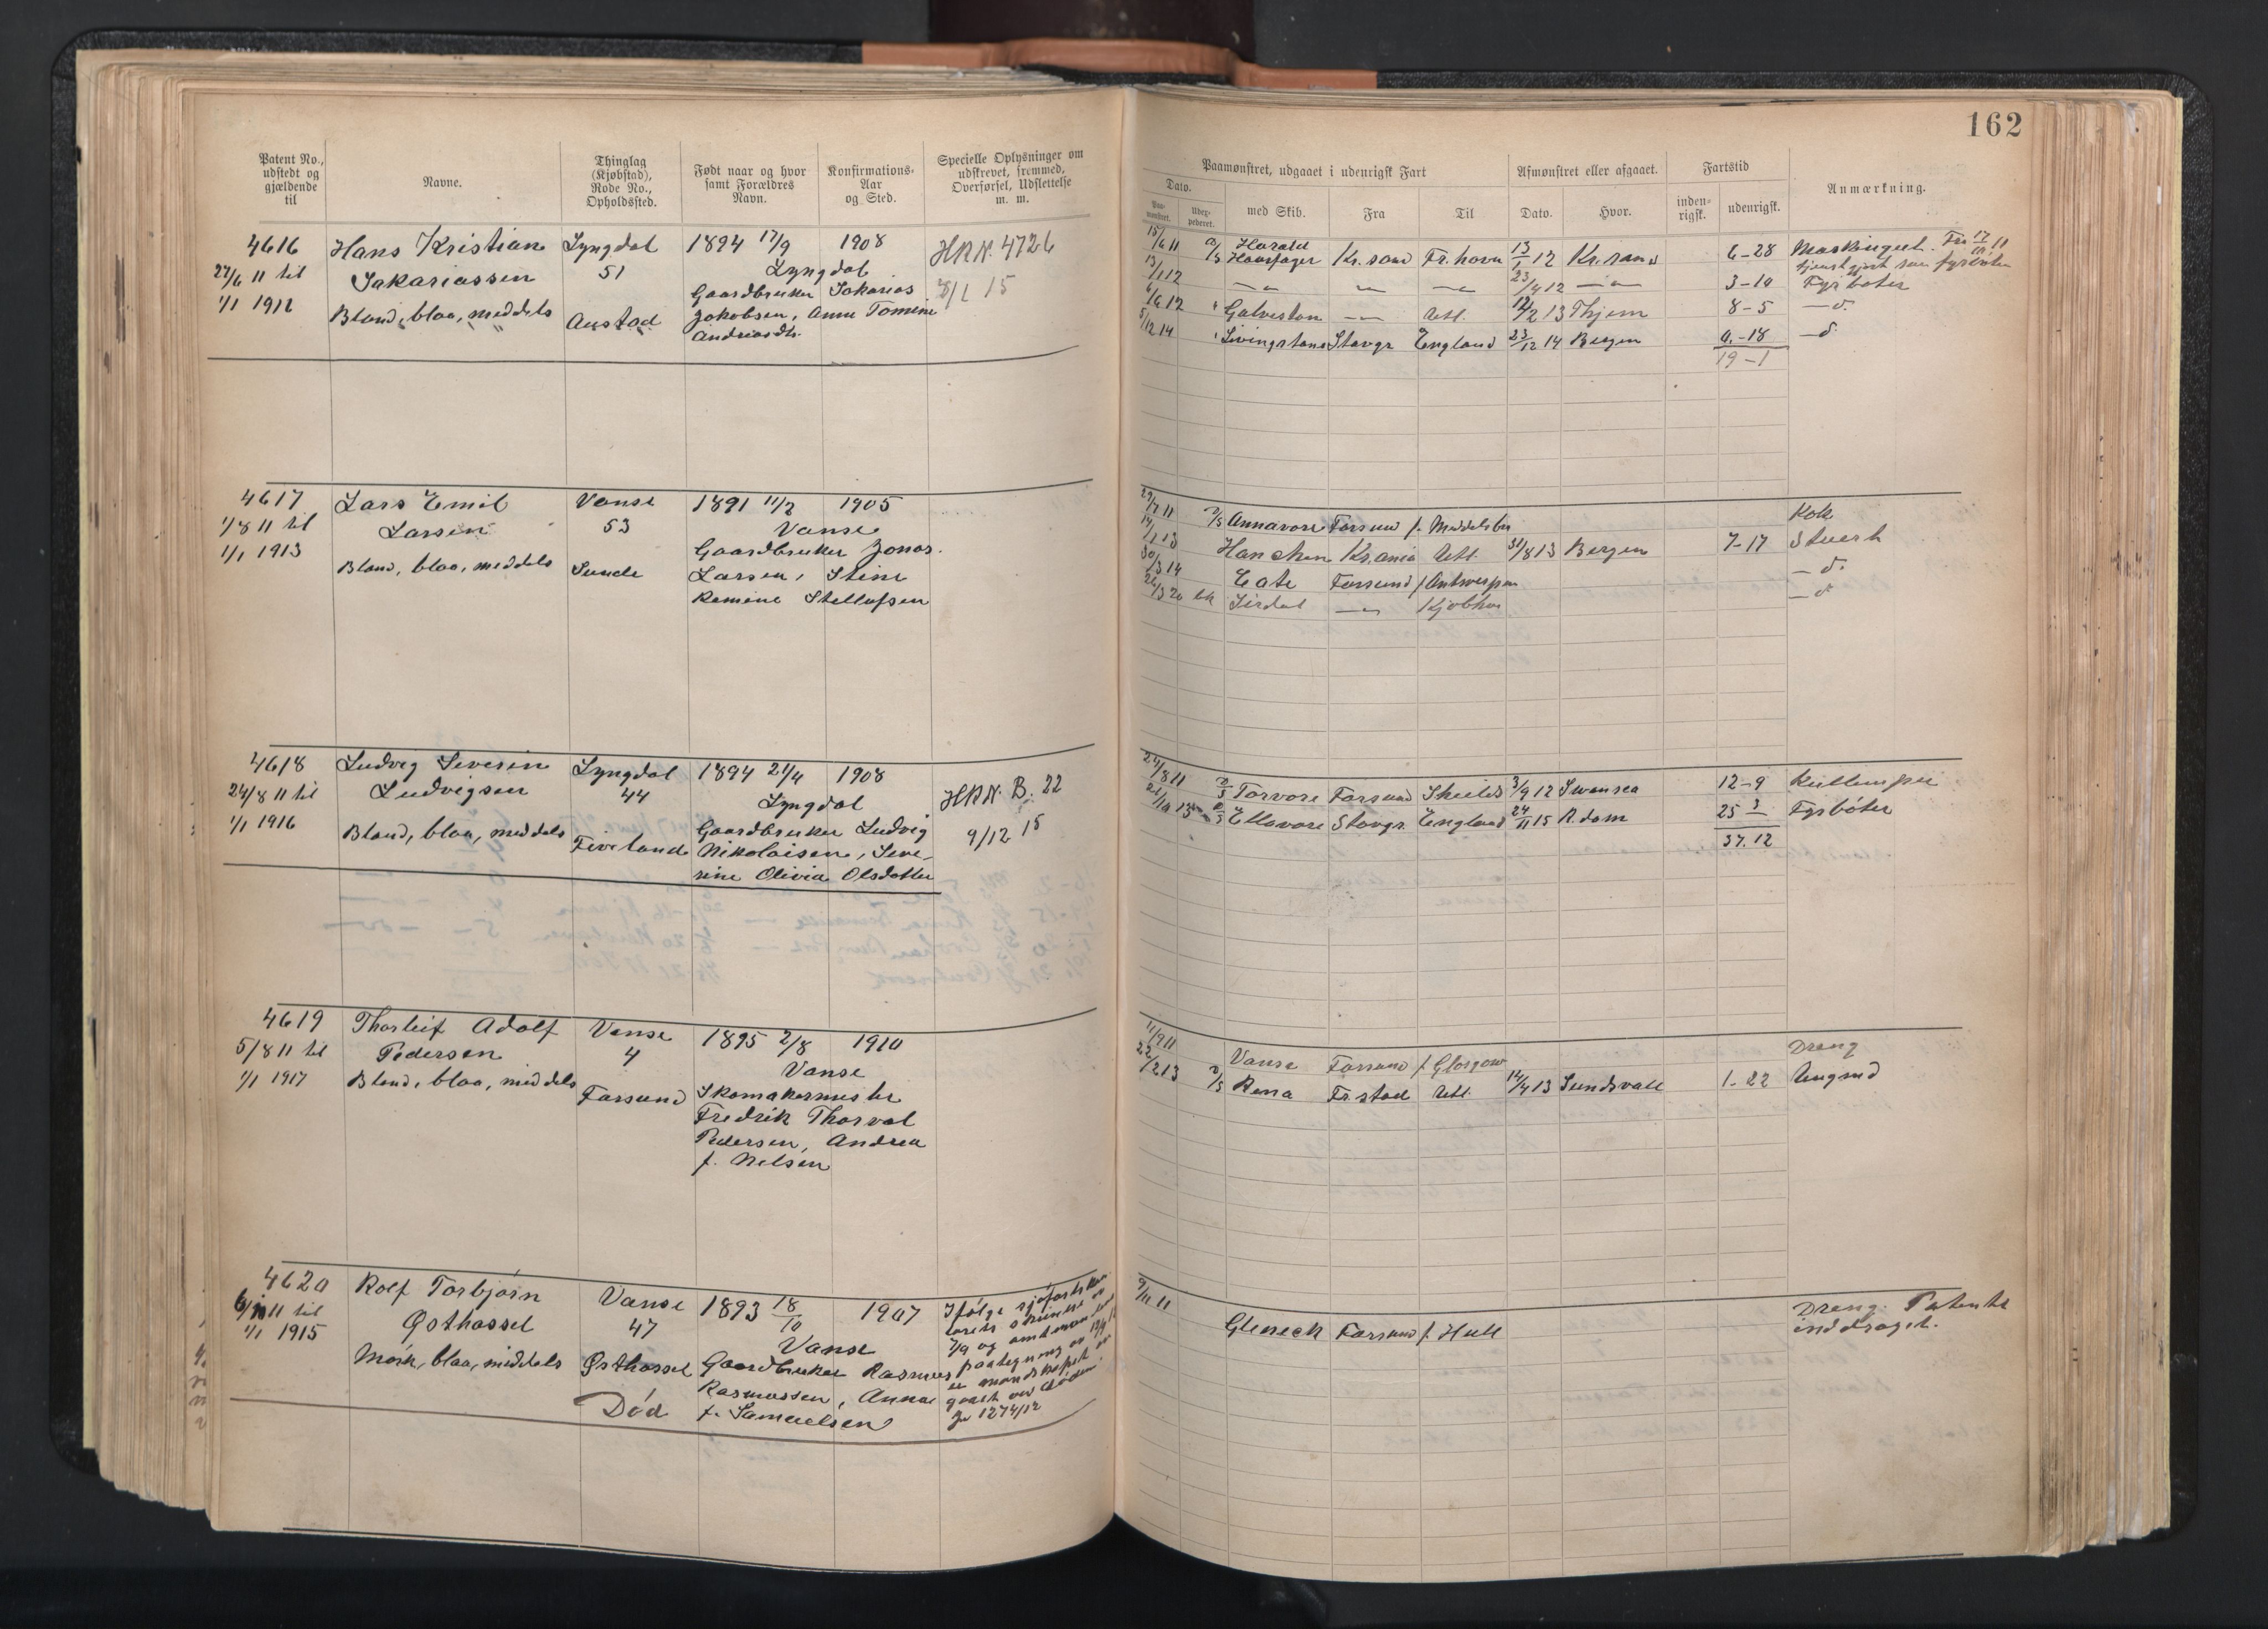 162
Patent No., udstedt og gjældende til
Navne.
Thinglag (Kjøbstad), Rode No., Opholdssted.
Født naar og hvor samt Forældres Navn.
Konfirmations-Aar og Sted.
Specielle Oplysninger om udskrevet, fremmed, Overførsel, Udslettelse m. m.
Paamønstret, udgaaet i udenrigsk Fart
Afmønstret eller afgaaet.
Fartstid
Anmærkning.
Dato.
Paa-mønstret.
Udex-pederet.
med Skib.
Fra
Til
Dato.
Hvor.
inden-rigsk.
udenrigsk.
4616 Hans Kristian Lyngdal 1894 17/9 1908 HRN. 4726
27/6 11 til Sakariassen 51 Lyngdal
1/1 1912 Blond, blaa, middels Austad Gaardbruker Sakarias 15
Jakobsen, Anne Tomine
Andreasdtr.
15/6 11 Harald Haarfager Kr.sand Fr.havn 13/1 12 Kr.sand 6-28 Maskingut. Fra
tjenstgjort som fyrbøter
13/1 12 — " — — " — — " — 23/4 12 — " — 3-10 Fyrbøter
6/6 12 Galveston — " — Utl. 12/2 13 Thjem 8-5 — d.
5/12 14 Livingstone Stavgr England 23/12 14 Bergen 0.-18 — d.
19-1
4617 Lars Emil Vanse 1891 11/2 1905
1/8 11 til Larsen 53 Vanse
1/1 1913 Blond, blaa, middels Sunde Gaardbruker Jonas
Larsen, Stine
Remine Stellufsen
29/7 11 Annavore Farsund f. Middelsbro Kok
14/1 13 Kr.ania Utl. 31/8 13 Bergen 7-17 Stuert
30/3 14 Cate Farsund f. Antwerpen — d.
26/3 20 Sirdal — " — Kjøbhvn — d
4618 Ludvig Severin Lyngdal 1894 21/4 1908 HRN. B. 22
24/8 11 til Ludvigsen 44 Lyngdal 9/12 15
1/1 1916 Blond, blaa, middels Fiveland Gaardbruker Ludvig
Nikolaisen, Seve-
rine Olivia Olsdatter
24/8 11 Torvore Farsund Shields 3/9 12 Swansea 12-9 Kullemper
Ellavore Stavgr. England 24/11 15 R.dam 25 3 Fyrbøter
37.12
4619 Thorleif Adolf Vanse 1895 2/8 1910
5/8 11 til Pedersen 4 Vanse
1/1 1917 Blond, blaa, middels Farsund Skomakermester
Fredrik Thorval
Pedersen, Andrea
f. Nelsen
11/9 11 Vanse Farsund f. Glasgow Dreng
22/2 13 Rena Fr.stad Utl. 14/4 13 Sundsvall 1-22 Ungmd
4620 Rolf Torbjørn Vanse 1893 18/10 1907
11 til Østhassel 47 Vanse
1/1 1915 Mørk, blaa, middels Østhassel Gaardbruker Rasmus
Rasmussen, Anna
f. Samuelsen
Død
Ifølge sjøfartskon-
torets skrivelse av
7/9 og
paategning av
er mandskapet av-
gaaet ved døden.
Jr 1274/12
9/11 11 Gleneck Farsund f. Hull Dreng. Patentet
inddraget.